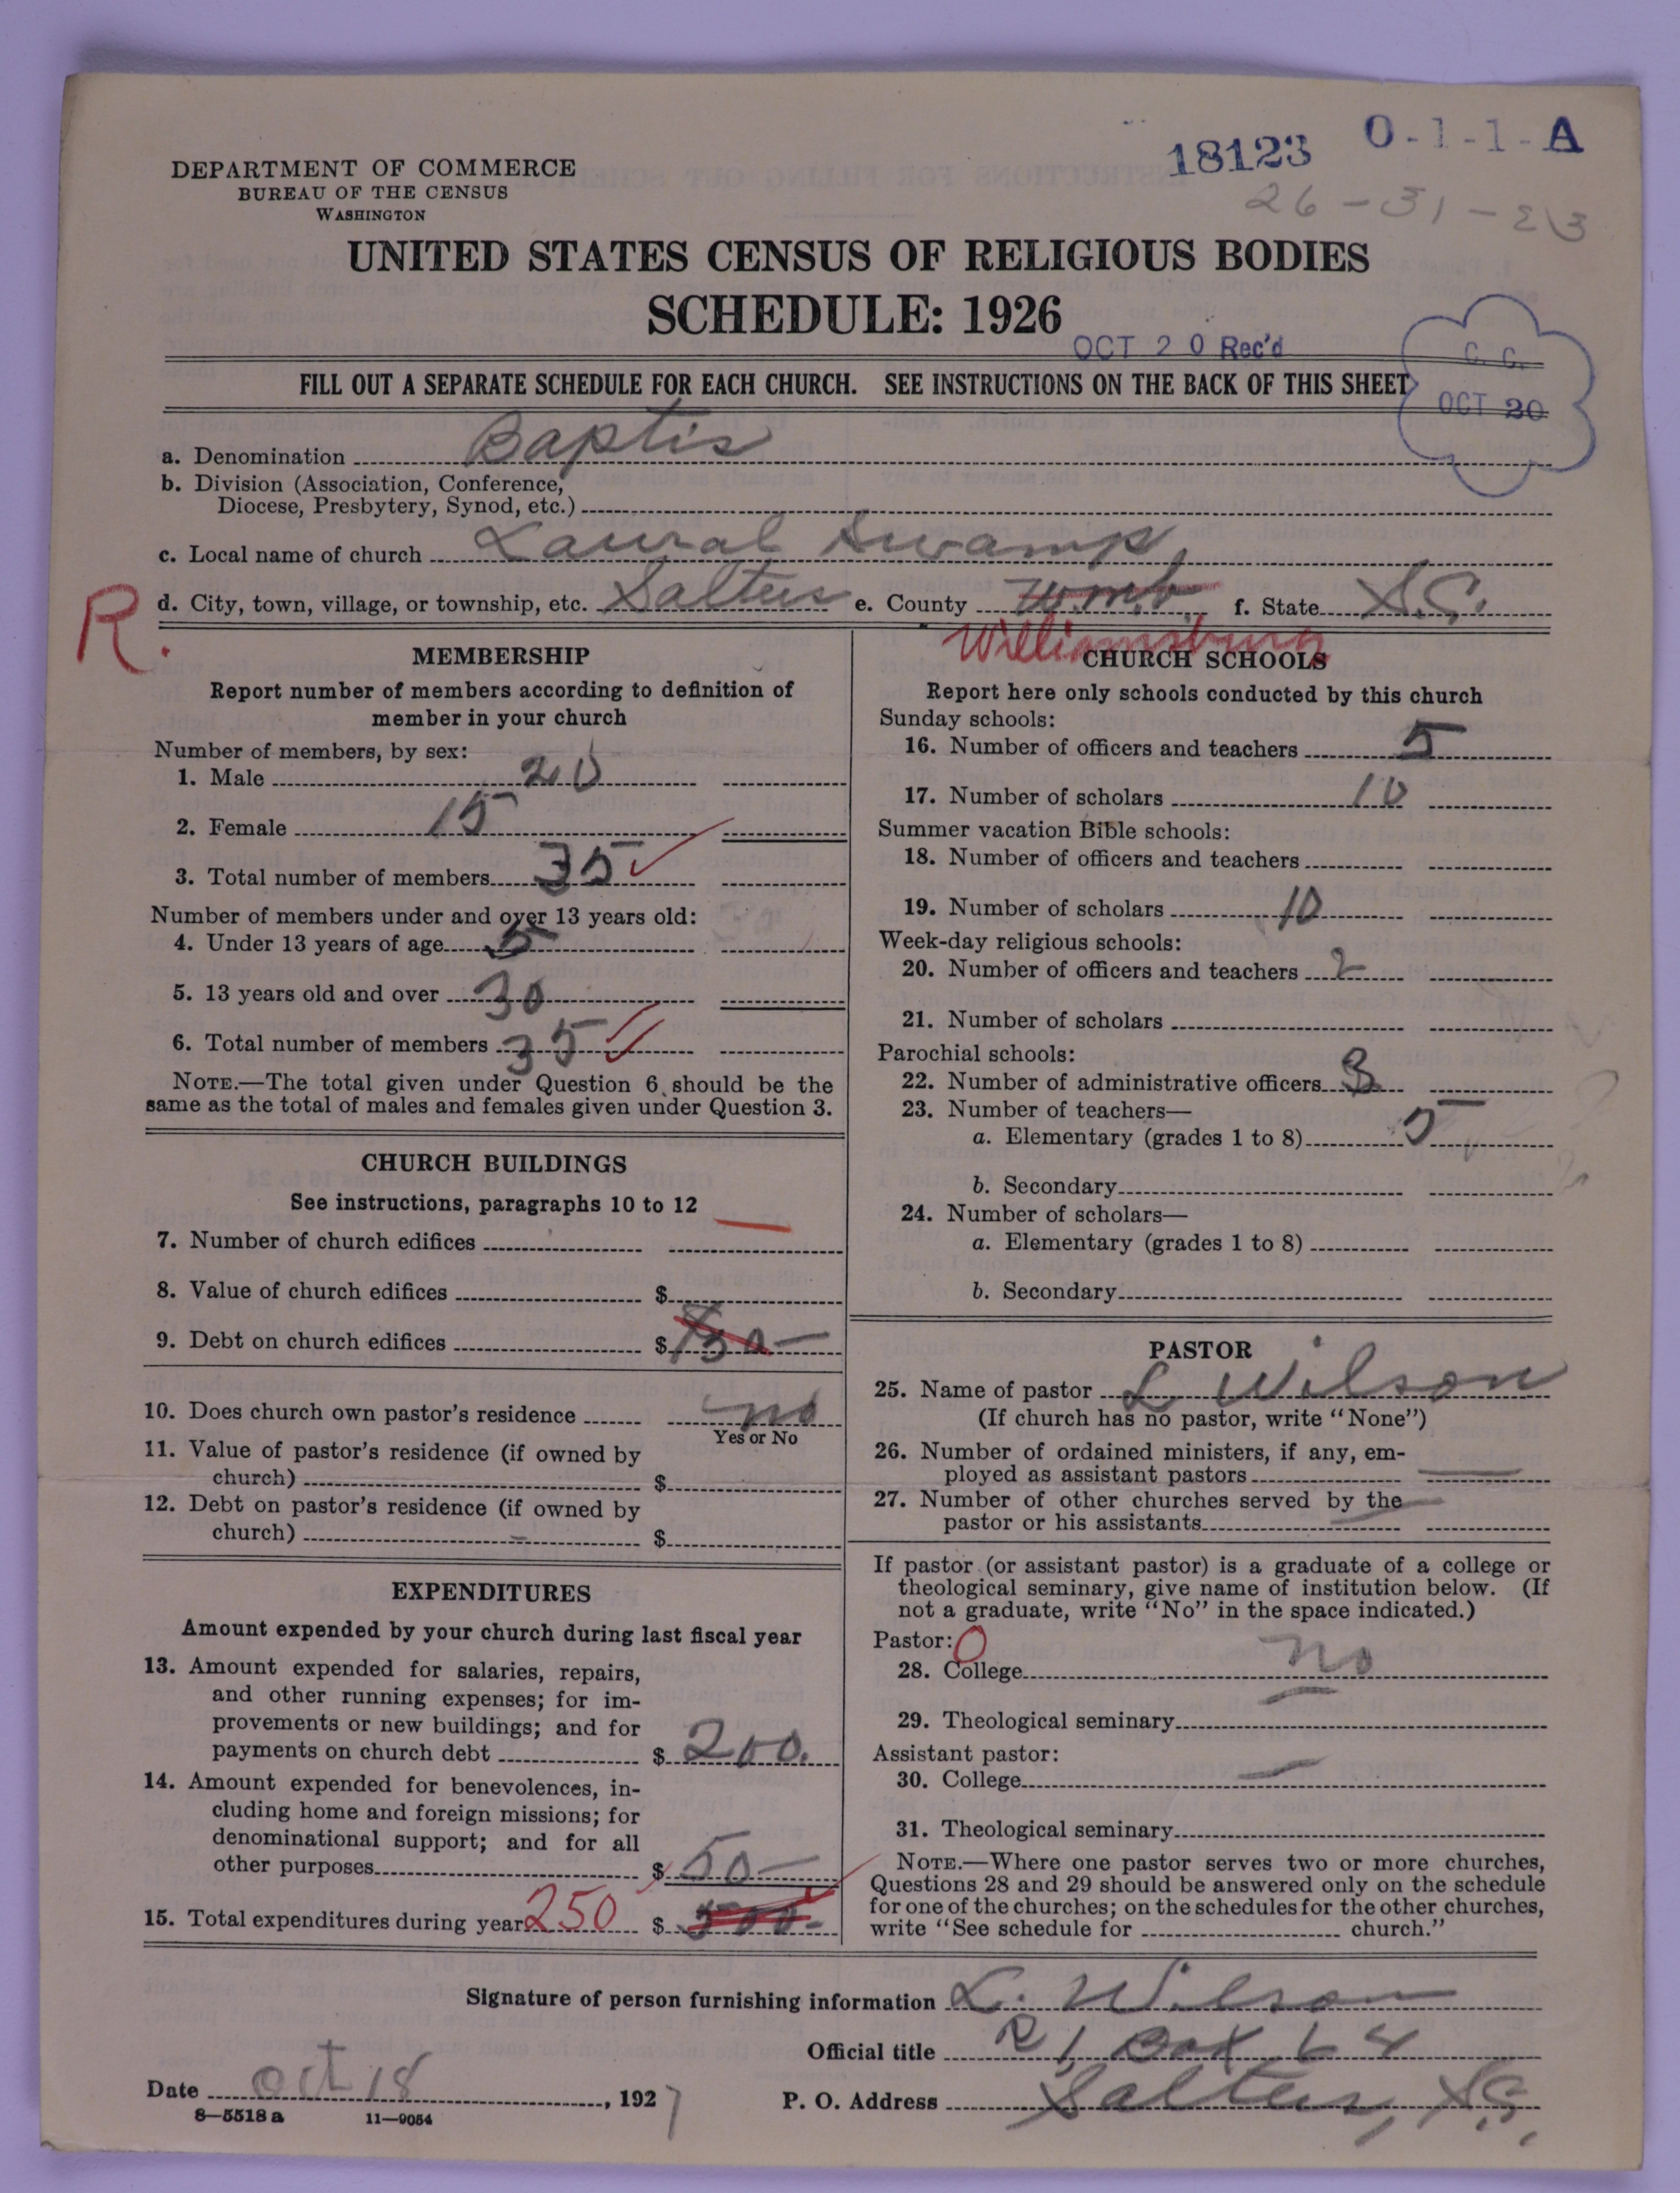 18123 0-1-1-A
26-31-213
DEPARTMENT OF COMMERCE
BUREAU OF THE CENSUS
WASHINGTON
UNITED STATES CENSUS OF RELIGIOUS BODIES
SCHEDULE: 1926
OCT 20 Rec'd
C. C.
OCT 20
FILL OUT A SEPARATE SCHEDULE FOR EACH CHURCH. SEE INSTRUCTIONS ON THE BACK OF THIS SHEET
a. Denomination Baptis
b. Division (Association, Conference,
Diocese, Presbytery, Synod, etc.)
c. Local name of church Laural Swamp
R. d. City, town, village, or township, etc. Salters e. County Wmb f. State S.C.
Williamsburg
MEMBERSHIP
Report number of members according to definition of
member in your church
Number of members, by sex:
1. Male 20
2. Female 15
3. Total number of members 35
Number of members under and over 13 years old:
4. Under 13 years of age 5
5. 13 years old and over 30
6. Total number of members 35
NOTE.—The total given under Question 6 should be the
same as the total of males and females given under Question 3.
CHURCH BUILDINGS
See instructions, paragraphs 10 to 12
7. Number of church edifices
8. Value of church edifices $
9. Debt on church edifices $
10. Does church own pastor's residence no
Yes or No
11. Value of pastor's residence (if owned by
church) $
12. Debt on pastor's residence (if owned by
church) $
EXPENDITURES
Amount expended by your church during last fiscal year
13. Amount expended for salaries, repairs,
and other running expenses; for im-
provements or new buildings; and for
payments on church debt $ 200.
14. Amount expended for benevolences, in-
cluding home and foreign missions; for
denominational support; and for all
other purposes $ 50—
15. Total expenditures during year 250 $
CHURCH SCHOOLS
Report here only schools conducted by this church
Sunday schools:
16. Number of officers and teachers 5
17. Number of scholars 10
Summer vacation Bible schools:
18. Number of officers and teachers
19. Number of scholars 10
Week-day religious schools:
20. Number of officers and teachers 2
21. Number of scholars
Parochial schools:
22. Number of administrative officers 3
23. Number of teachers—
a. Elementary (grades 1 to 8) 5
b. Secondary
24. Number of scholars—
a. Elementary (grades 1 to 8)
b. Secondary
PASTOR
25. Name of pastor L Wilson
(If church has no pastor, write "None")
26. Number of ordained ministers, if any, em-
ployed as assistant pastors —
27. Number of other churches served by the
pastor or his assistants
If pastor (or assistant pastor) is a graduate of a college or
theological seminary, give name of institution below. (If
not a graduate, write "No" in the space indicated.)
Pastor: 0
28. College no
29. Theological seminary
Assistant pastor:
30. College —
31. Theological seminary
NOTE.—Where one pastor serves two or more churches,
Questions 28 and 29 should be answered only on the schedule
for one of the churches; on the schedules for the other churches,
write "See schedule for church."
Signature of person furnishing information L. Wilson
Official title R 1, Box 64
Date Oct 18, 1927 P. O. Address Salters, S.C.
8—5518a 11—9054